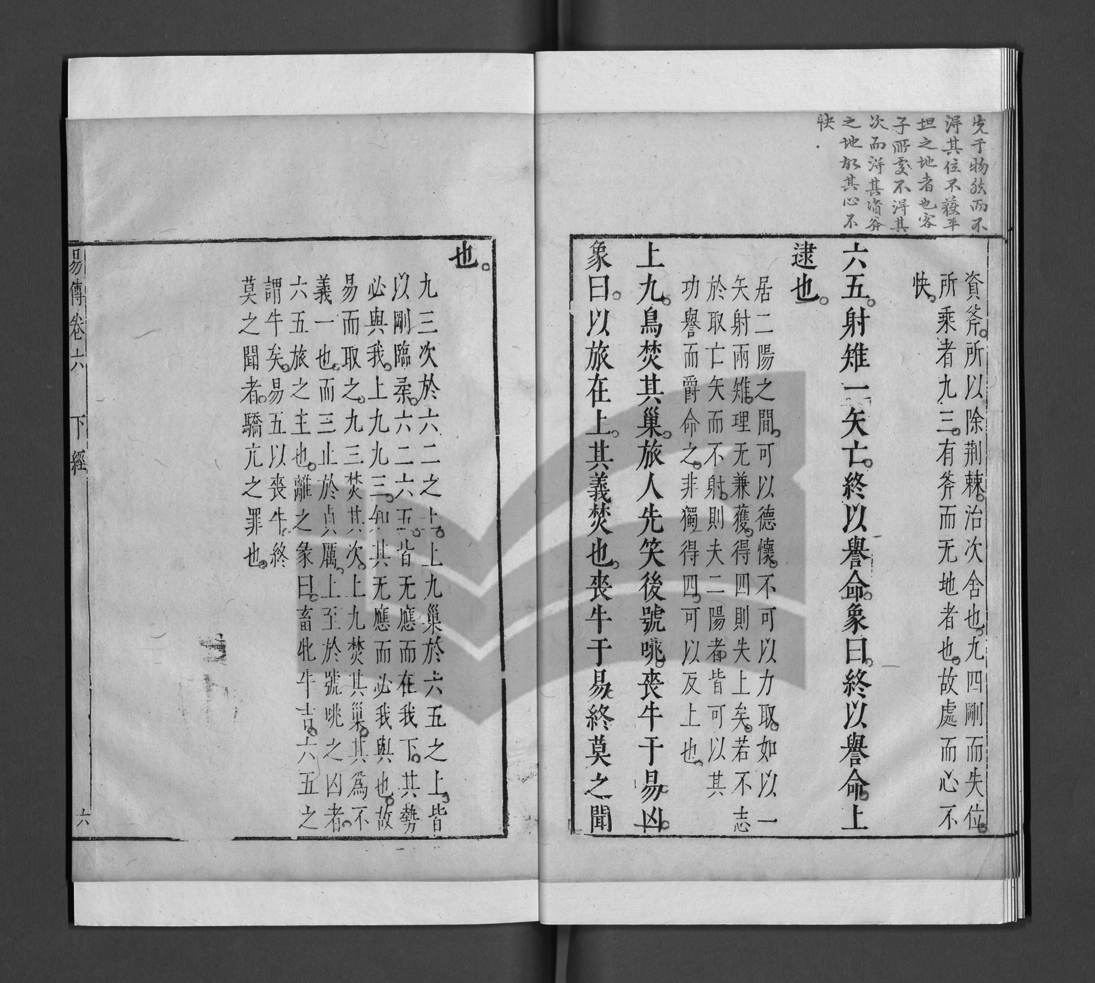 先于物然而不
得其位不獲平
坦之地者也客
子所處不得其
次而得其資斧
之地故其心不
快
資斧。所以除荆棘。治次舍也。九四剛而失位。
所乘者九三。有斧而无地者也。故處而心不
快。
六五。射雉一矢亡。終以譽命。象曰。終以譽命。上
逮也。
居二陽之間。可以德懷。不可以力取。如以一
矢射兩雉。理无兼獲。得四則失上矣。若不志
於取。亡矢而不射。則夫二陽者。皆可以其
功譽而爵命之。非獨得四。可以及上也。
上九。鳥焚其巢。旅人先笑後號咷。喪牛于易。凶。
象曰。以旅在上。其義焚也。喪牛于易。終莫之聞
也。
九三次於六二之上。上九巢於六五之上。皆
以剛臨柔。六二六五。皆无應而在我下。其勢
必與我。上九九三。知其无應而必我與也。故
易而取之。九三焚其次。上九焚其巢。其為不
義一也。而三止於貞厲。上至於號咷之凶者。
六五旅之主也。離之彖曰。畜牝牛吉。六五之
謂牛矣。易五以喪牛。終
莫之聞者。驕亢之罪也。
易傳卷六　下經　六